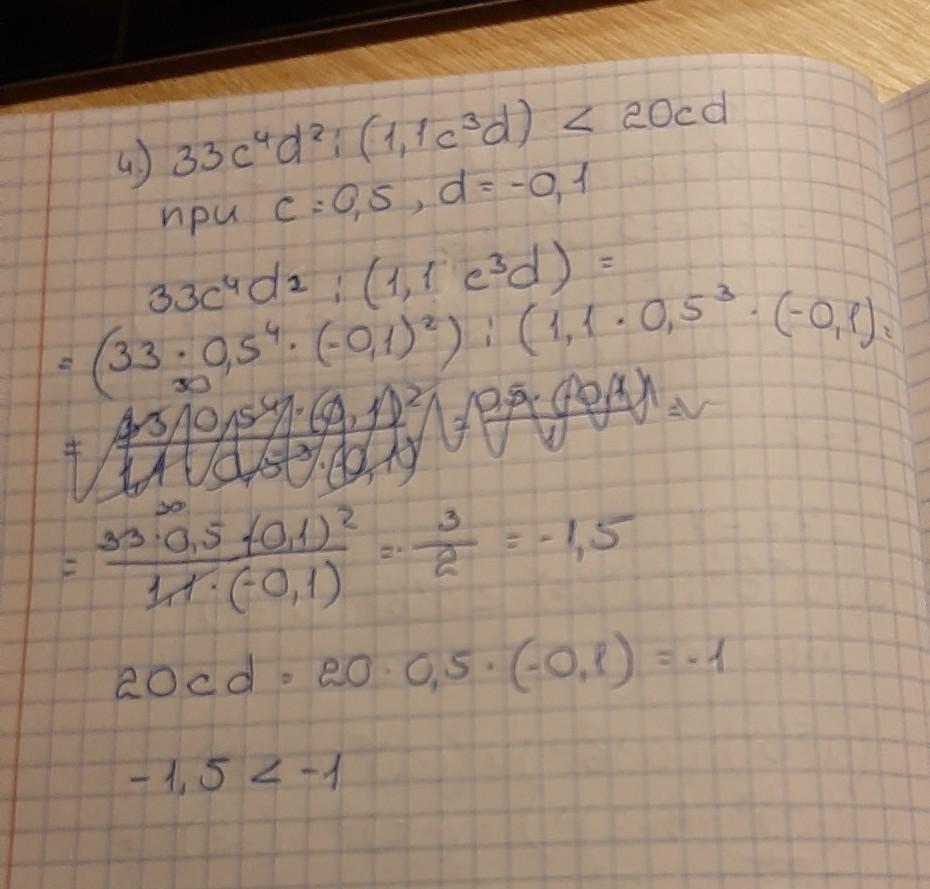 4.) 33c⁴d² : (1,1c³d) < 20cd
при c = 0,5, d = -0,1
33c⁴d² : (1,1 c³d) =
= (33 · 0,5⁴ · (-0,1)²) : (1,1 · 0,5³ · (-0,1) =
30
= 33 · 0,5 (0,1)² / 1,1 · (-0,1) = - 3/2 = -1,5
20cd = 20 · 0,5 · (-0,1) = -1
-1,5 < -1